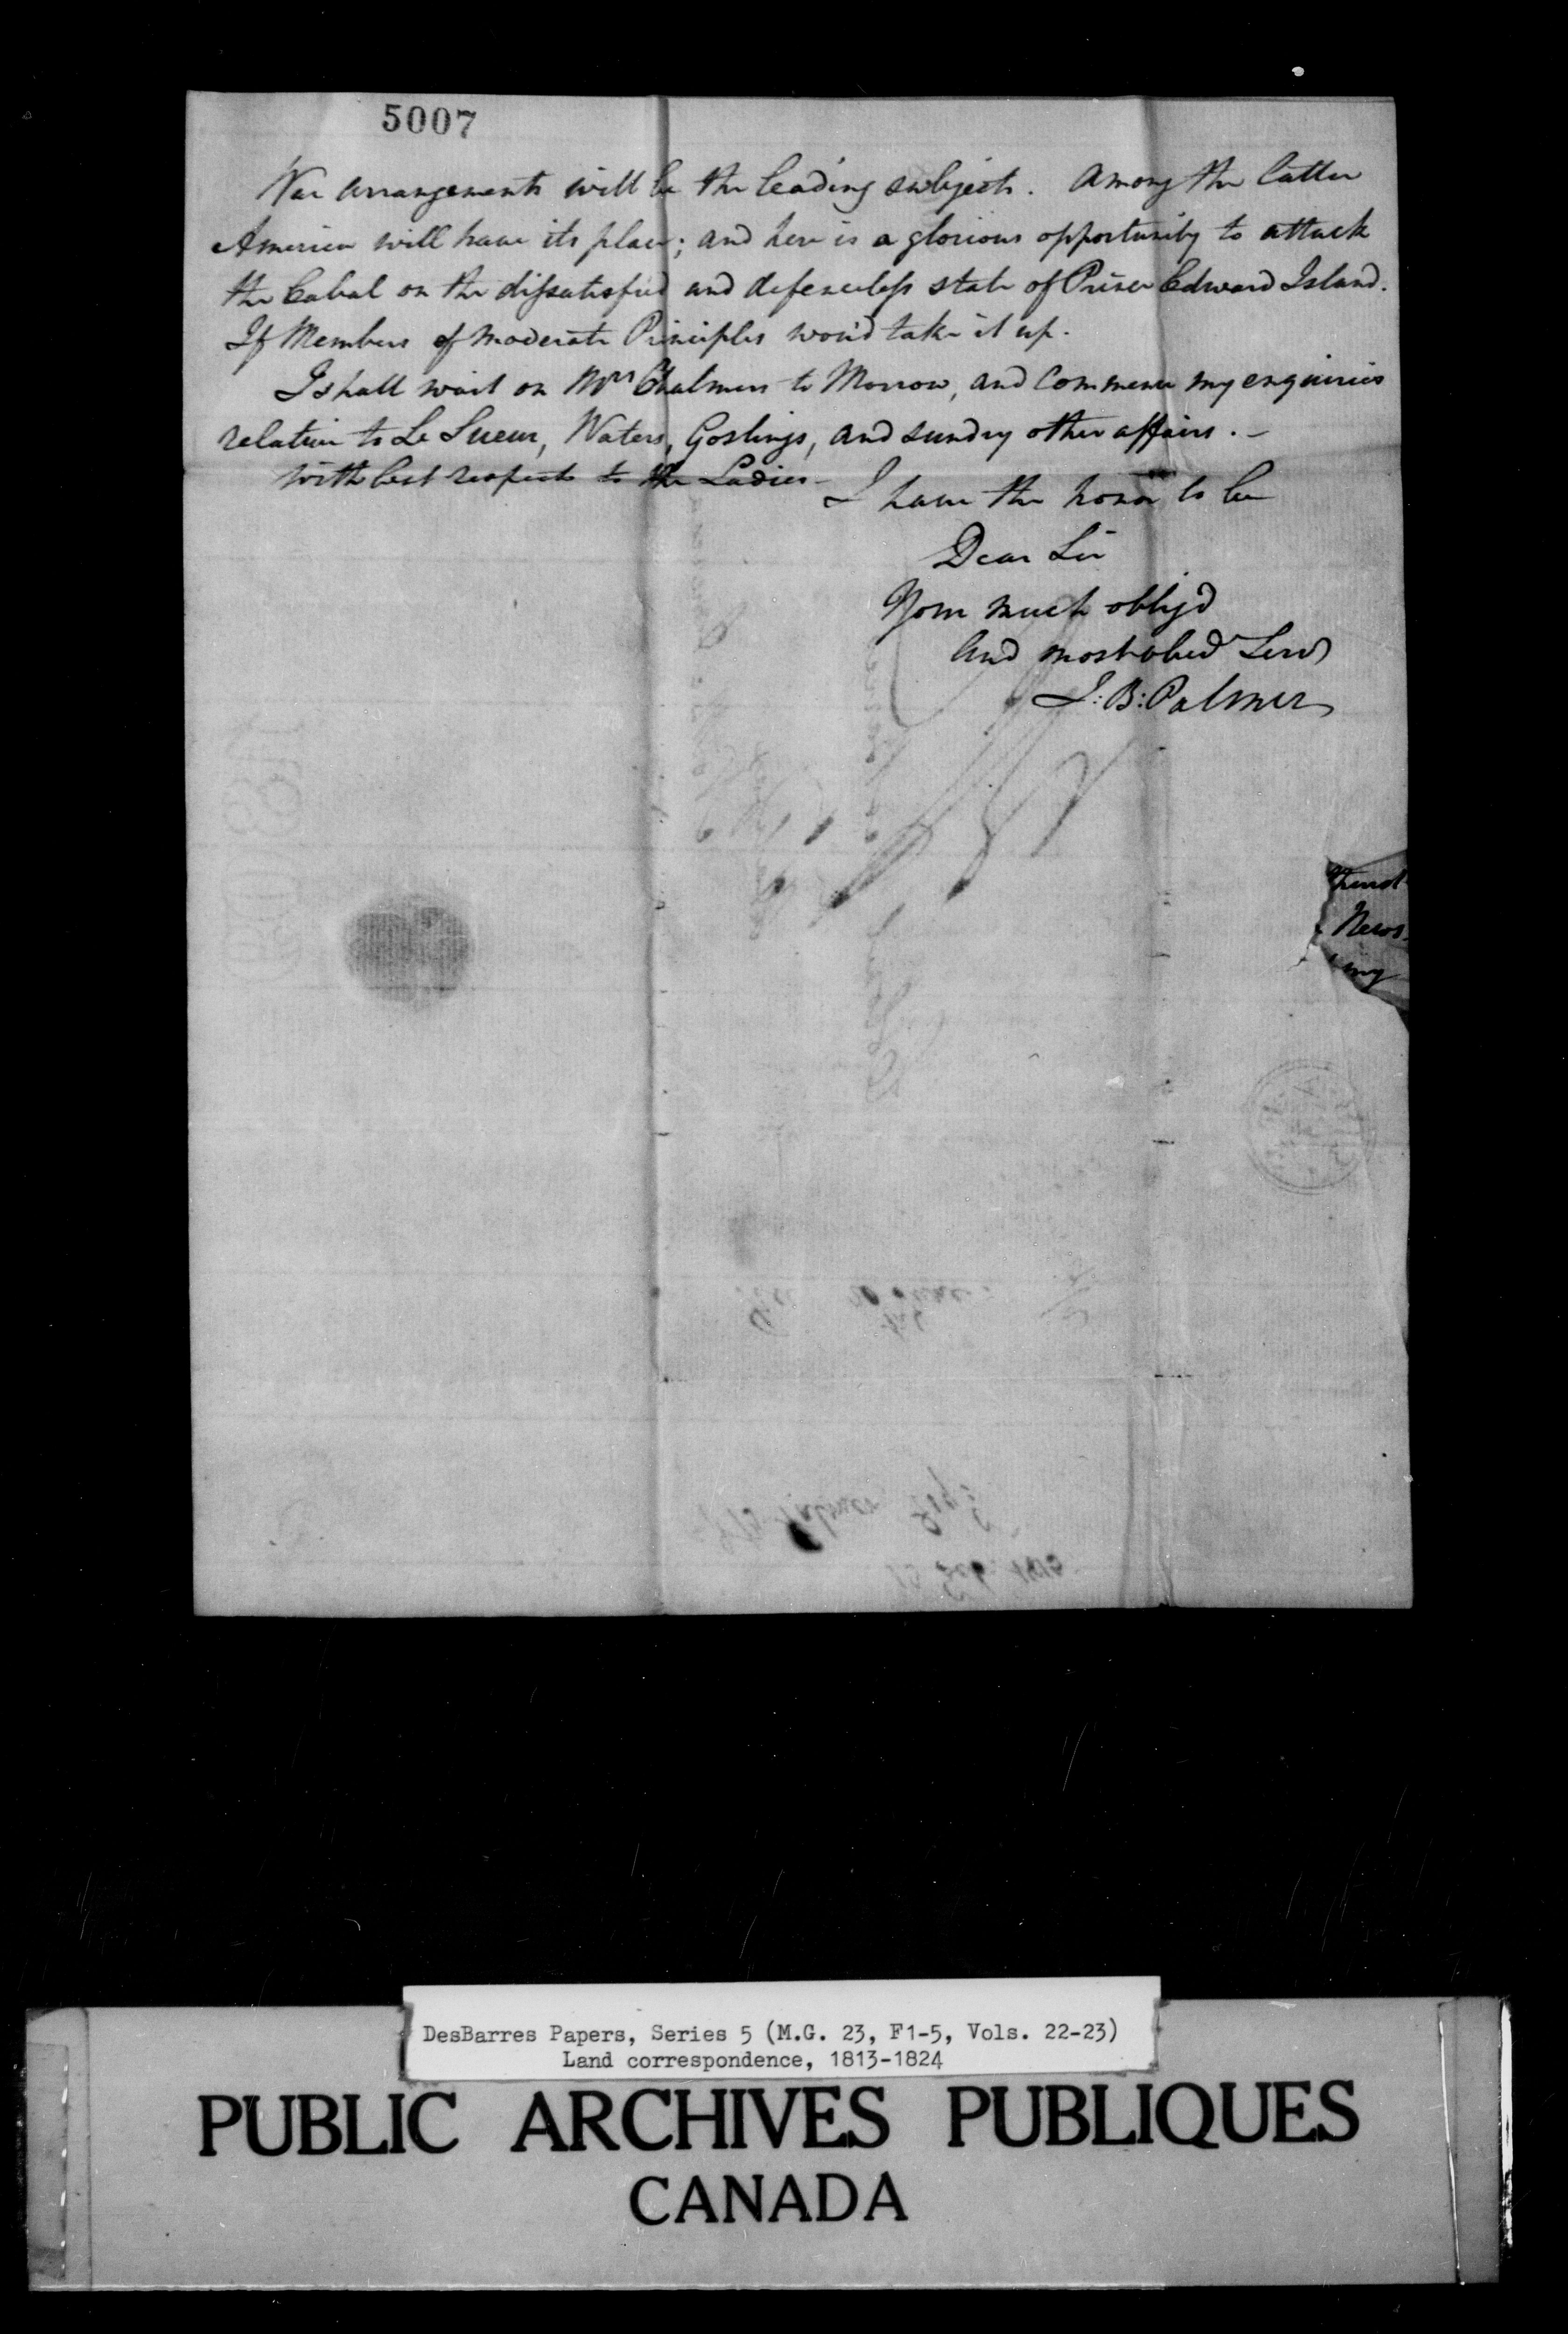 5007
War arrangements will be the leading subjects. Among the latter
America will have its place; and here is a glorious opportunity to attack
the Cabal on the dissatisfied and defenceless state of Prince Edward Island.
If Members of moderate Principles wou'd take it up.
I shall wait on Mrs Chalmers to Morrow, and Commence my enquiries
relative to Le Sueur, Waters, Goslings, and sundry other affairs. -
With best respects to the Ladies -
I have the honor to be
Dear Sir
Your much oblig'd
And most obed Serv
J: B: Palmer
News
my
DesBarres Papers, Series 5 (M.G. 23, F1-5, Vols. 22-23)
Land correspondence, 1813-1824
PUBLIC ARCHIVES PUBLIQUES
CANADA